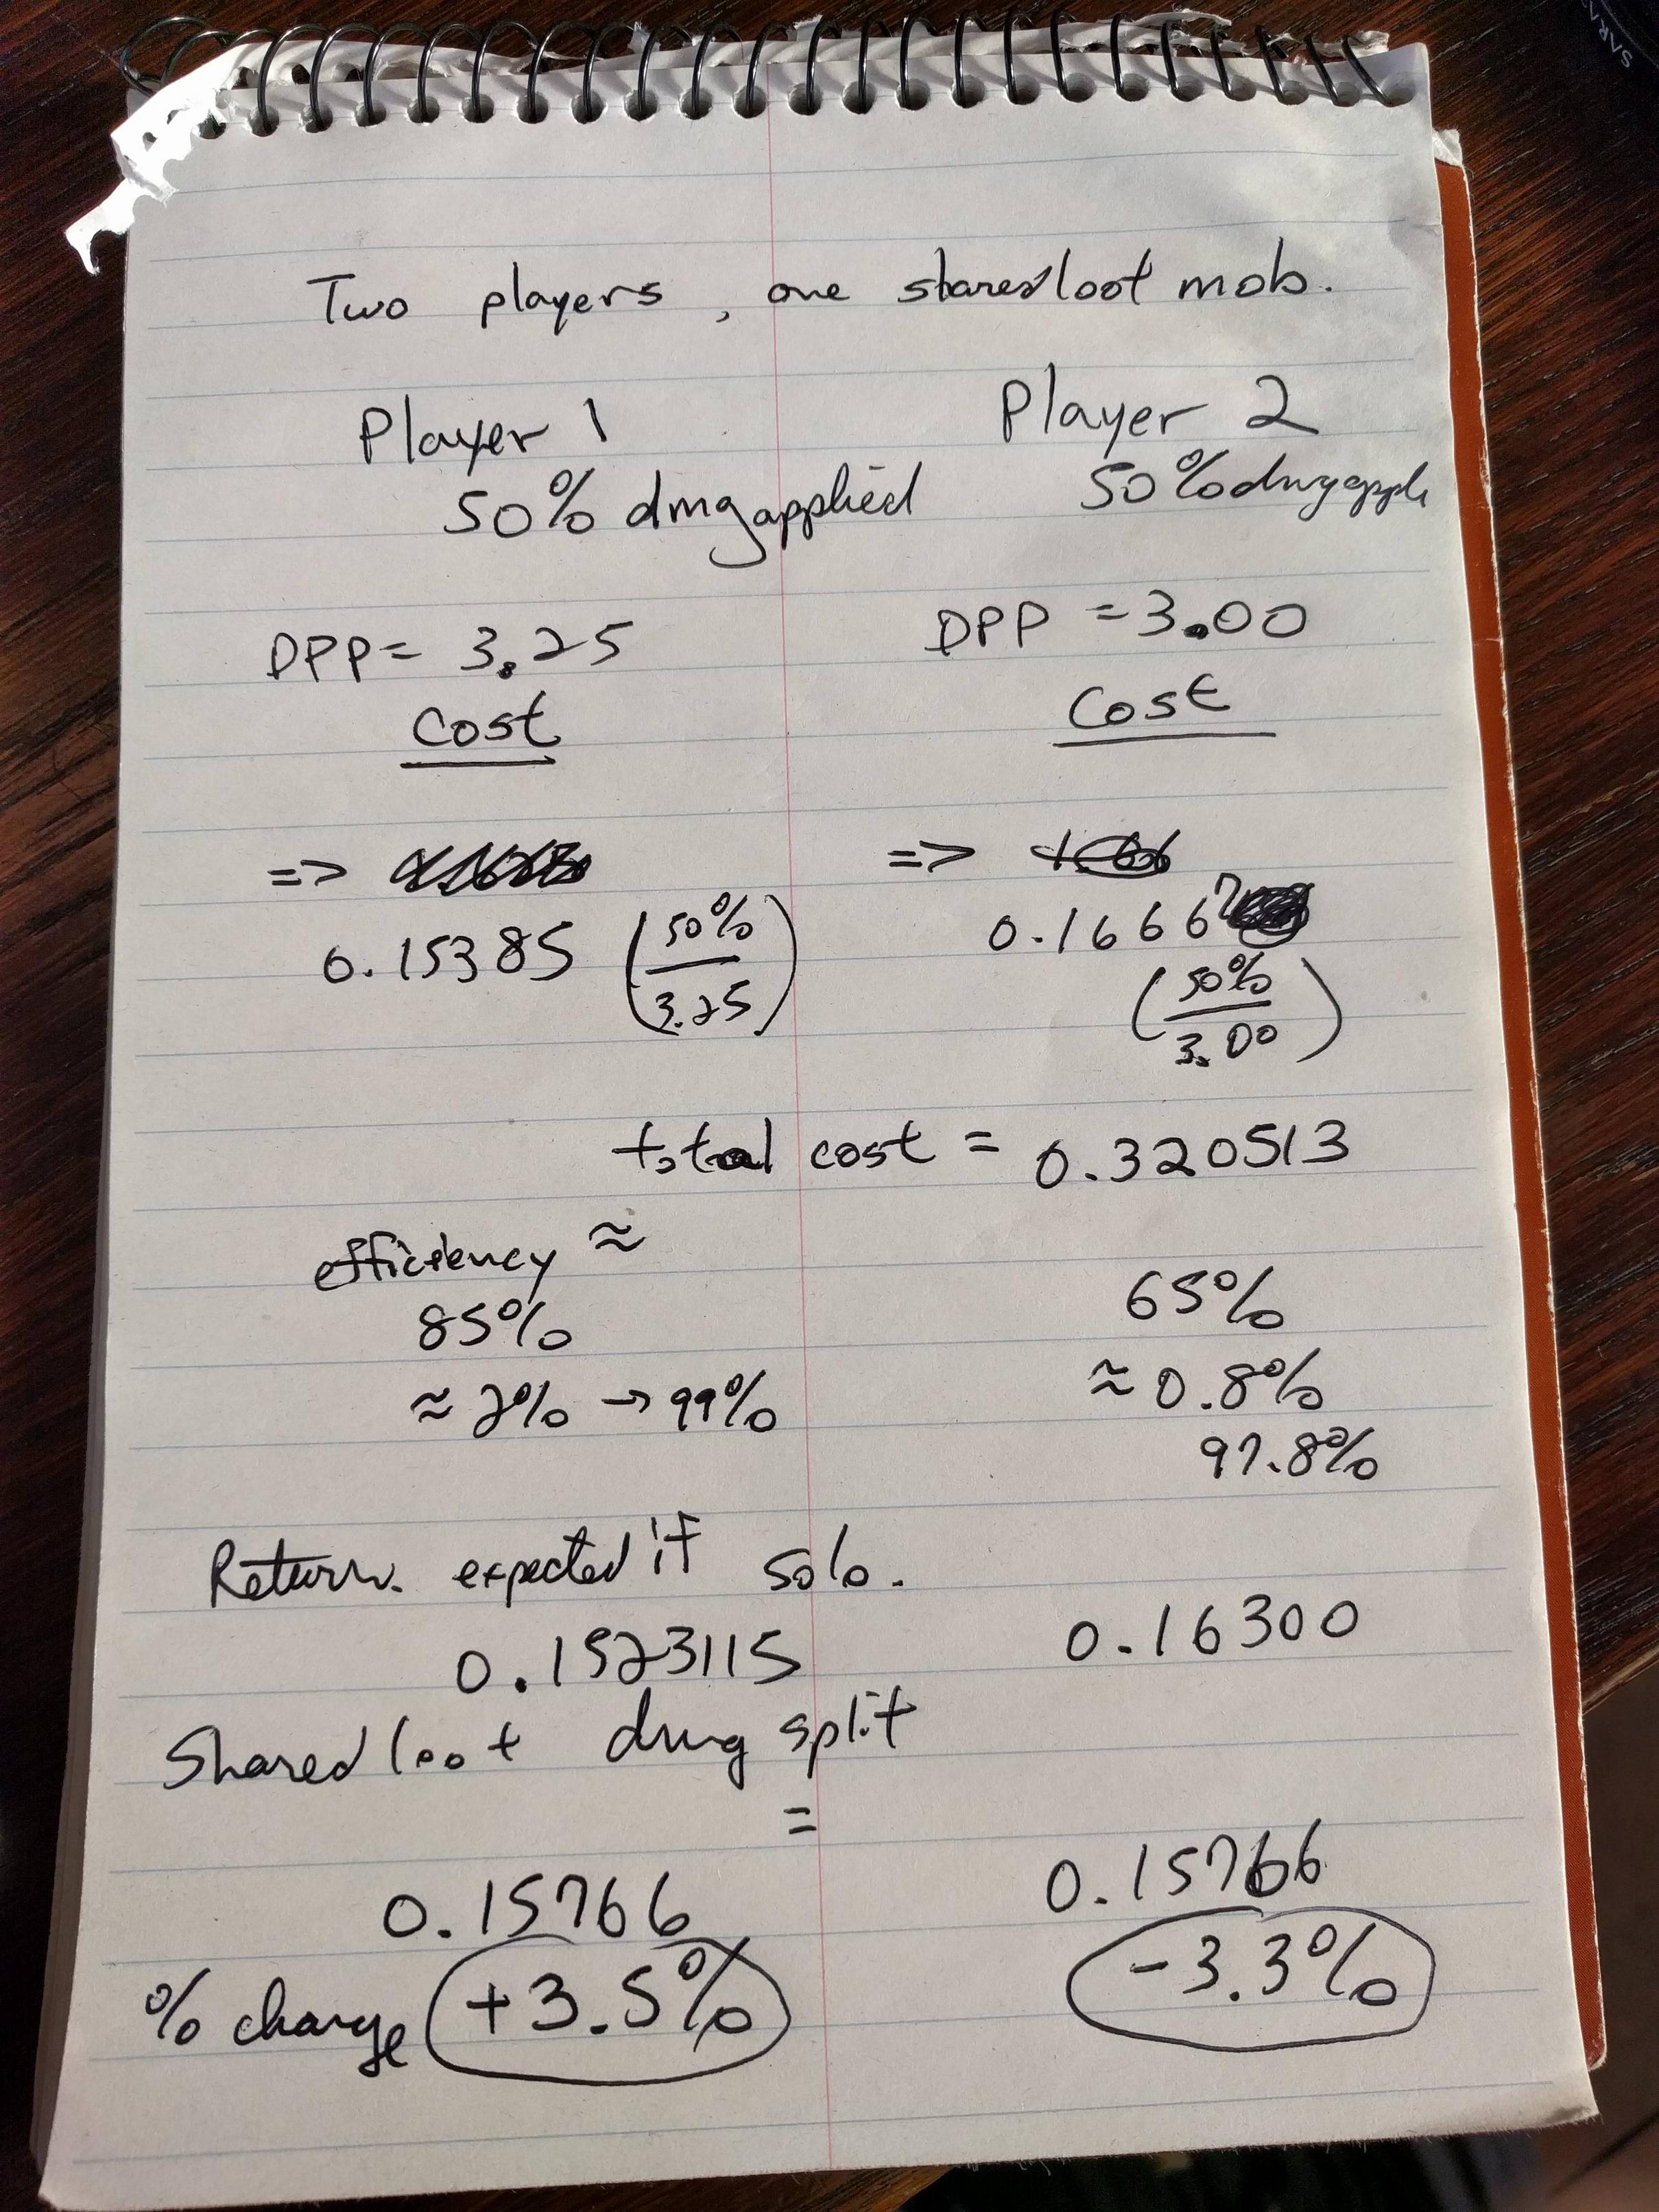 Two players, one shared loot mob.
Player 1
Player 2
50% dmg applied
50% dmg appli
DPP= 3.25
DPP = 3.00
Cost
Cost
=>
=>
0.15385 (50%/3.25)
0.16667
(50%/3.00)
total cost = 0.320513
efficiency ≈
85%
65%
≈ 2% → 99%
≈ 0.8%
97.8%
Return expected if solo.
0.1523115
0.16300
Shared loot dmg split
=
0.15766
0.15766
% change +3.5%
-3.3%